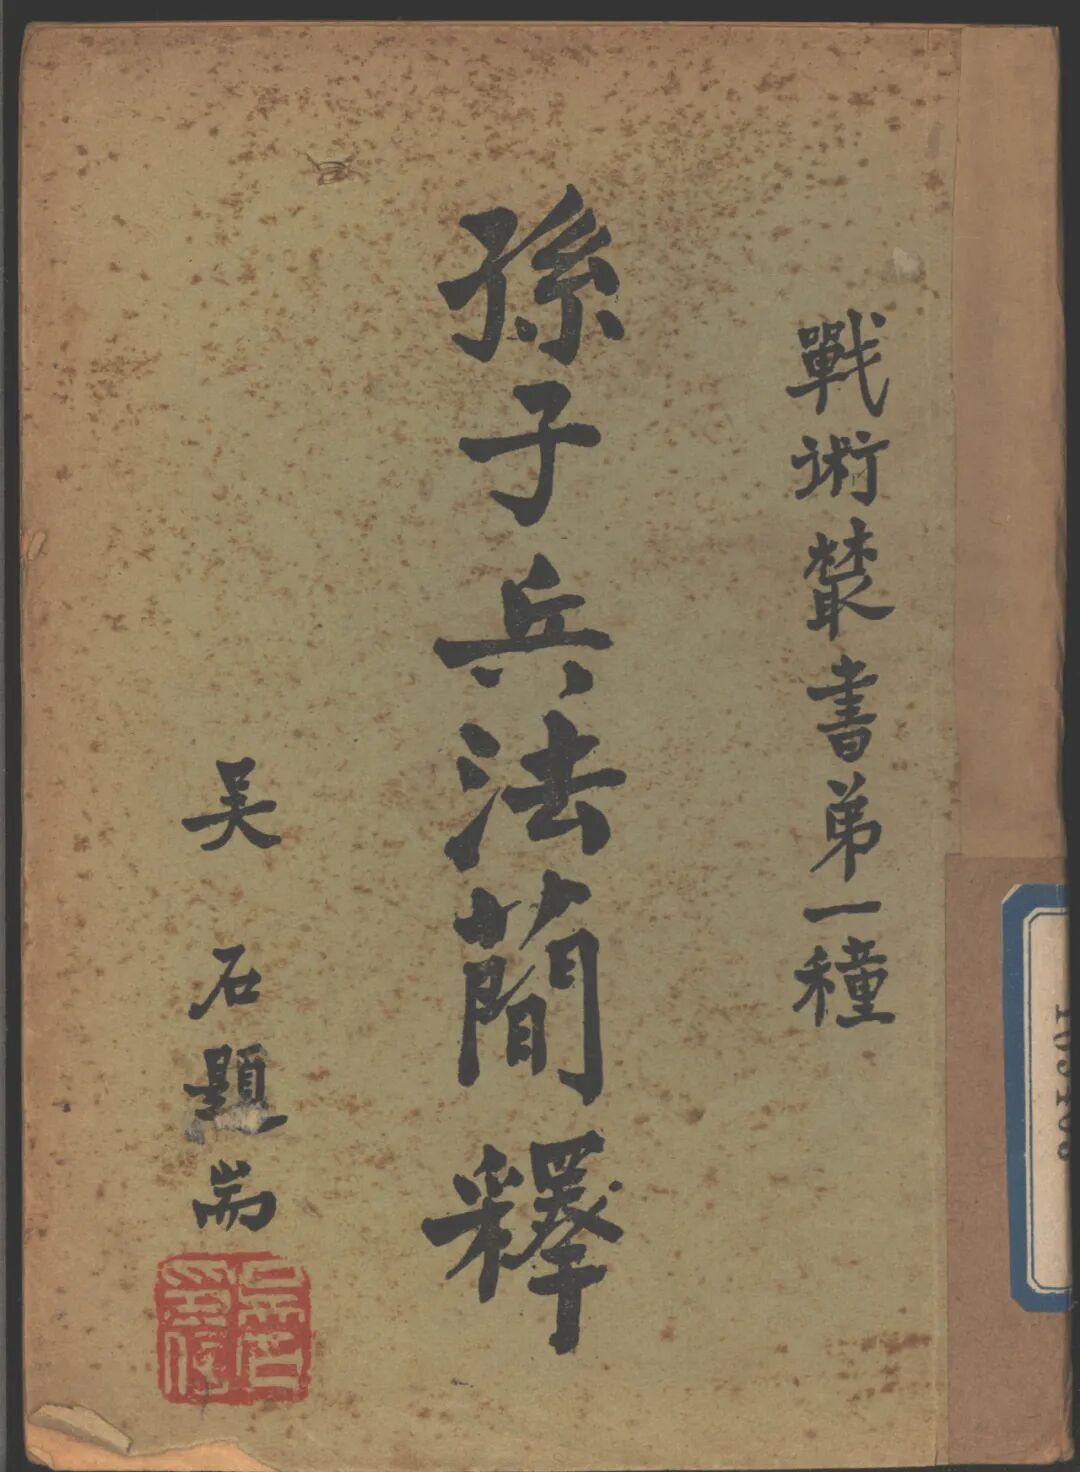 戰術叢書弟一種
孫子兵法簡釋
吴石題耑